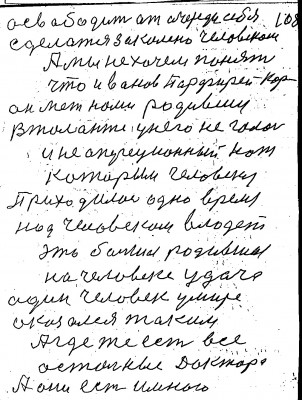 освабадит ат очереди себя 108
сделатся законено человеком
А мы не хочем понят
что иванов Парфирей Кор
он мет нами родивши
в таланте: унего не голос
и не операционный нож
которым человеку
Приходилос одно время
над человеком владет
это боты родившис
на человеке удача
один человек умире
оказался таким
А где те ест все
осталные Доктора
А они ест и много